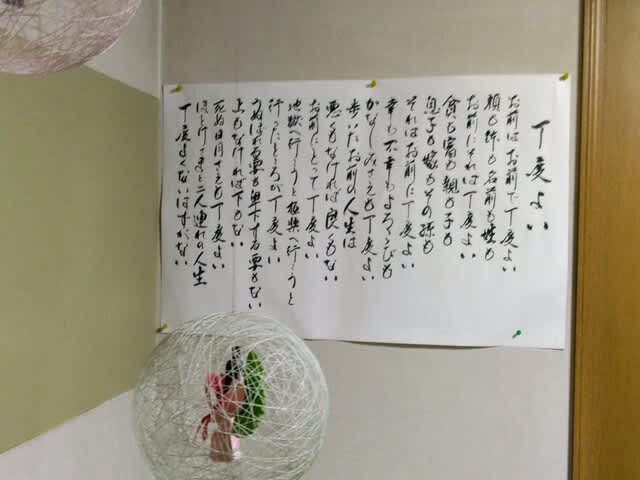 丁度よい
お前はお前で丁度よい
顔も体も名前も姓も
お前にそれは丁度よい
貧も富も親も子も
息子も嫁もその孫も
それはお前に丁度よい
幸も不幸もよろこびも
かなしみさえも丁度よい
歩いたお前の人生は
悪くもなければ良くもない
お前にとって丁度よい
地獄へ行こうと極楽へ行こうと
行ったところが丁度よい
うぬぼれる要も卑下する要もない
上もなければ下もない
死ぬ日月さえも丁度よい
二人連れの人生
丁度よくないはずがない